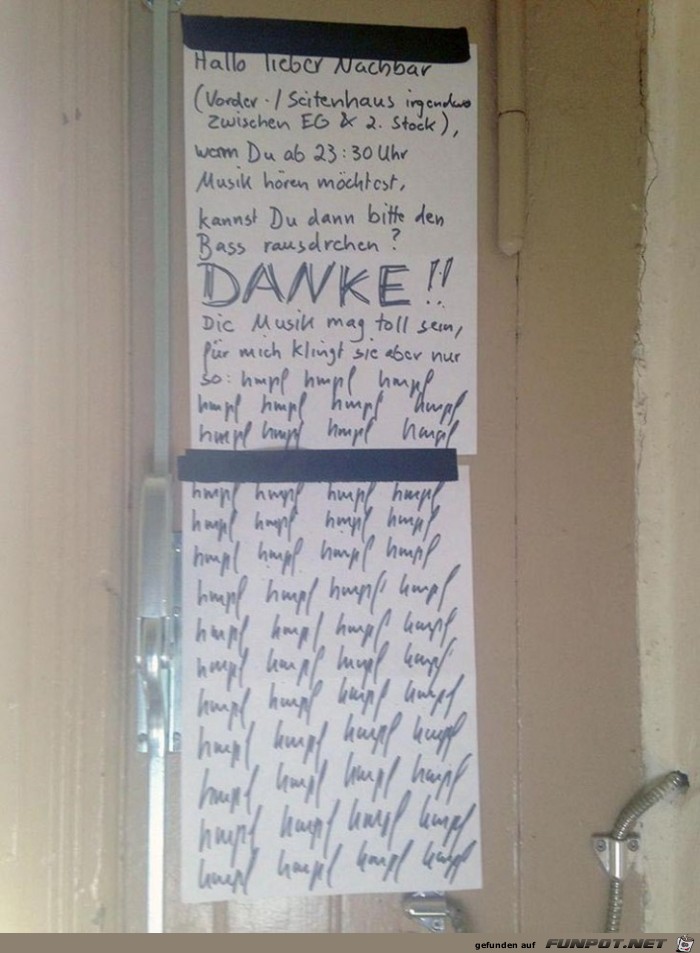 Hallo lieber Nachbar
(Vorder-/Seitenhaus irgendwo
zwischen EG & 2. Stock),
wenn Du ab 23:30 Uhr
Musik hören möchtest,
kannst Du dann bitte den
Bass rausdrehen?
DANKE!!
Die Musik mag toll sein,
für mich klingt sie aber nur
so: hmpf hmpf hmpf
hmpf hmpf hmpf hmpf
hmpf hmpf hmpf hmpf
hmpf hmpf hmpf hmpf
hmpf hmpf hmpf hmpf
hmpf hmpf hmpf hmpf
hmpf hmpf hmpf hmpf
hmpf hmpf hmpf hmpf
hmpf hmpf hmpf hmpf
hmpf hmpf hmpf hmpf
hmpf hmpf hmpf hmpf
hmpf hmpf hmpf hmpf
hmpf hmpf hmpf hmpf
hmpf hmpf hmpf hmpf
gefunden auf FUNPOT.NET